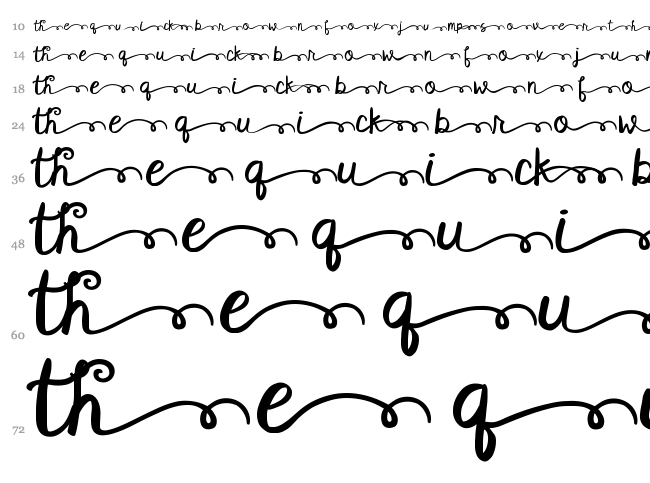 10 the quick brown fox jumps over th
14 the quick brown fox ju
18 the quick brown fo
24 the quick brow
36 the quick b
48 the qui
60 the qu
72 the q